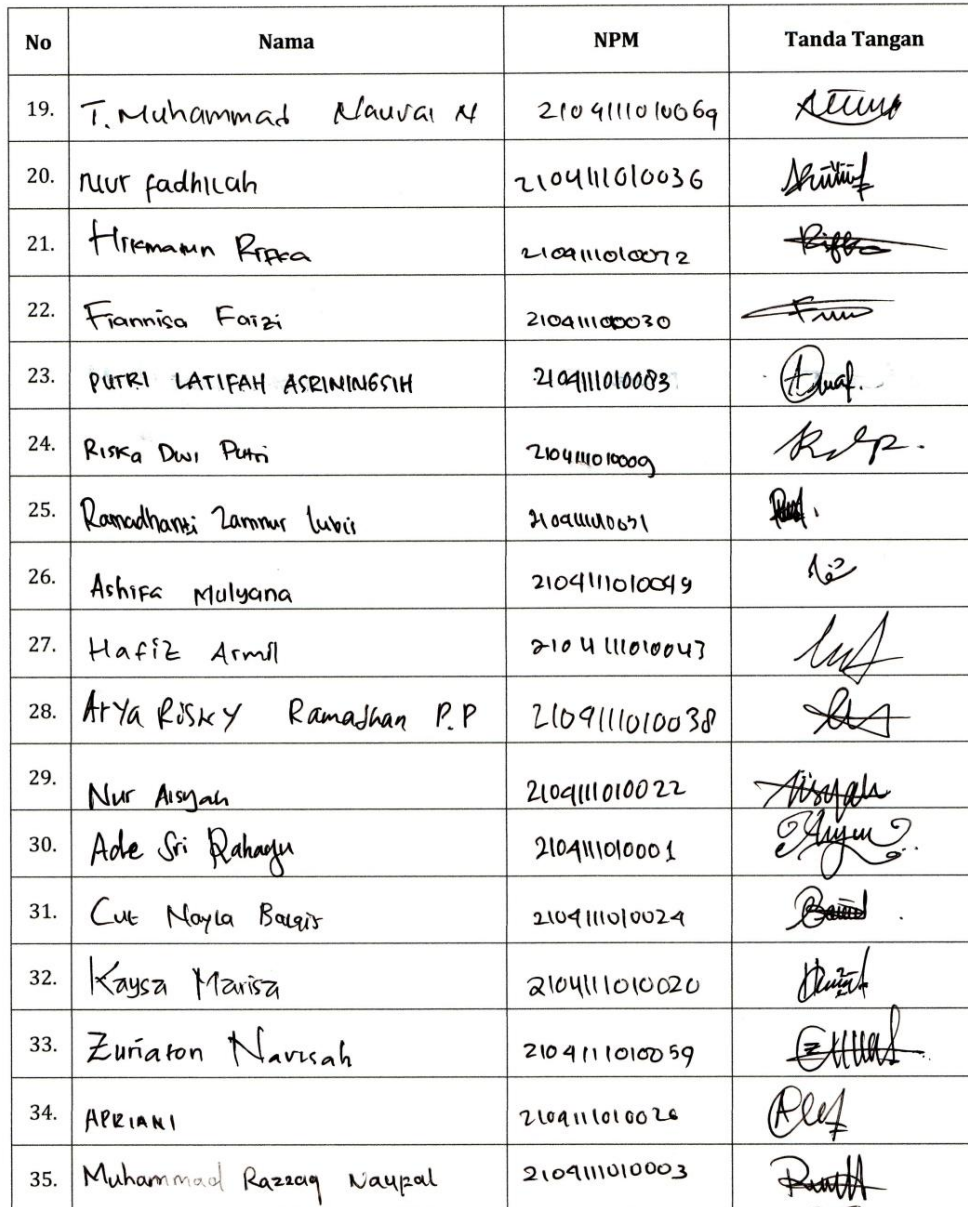 No Nama NPM Tanda Tangan
19. T. Muhammad Nauval N 2104111010069
20. Nur fadhilah 2104111010036
21. Hikmatun Rifka 2104111010072
22. Fiannisa Faizi 210411100030
23. PUTRI LATIFAH ASRININGSIH 2104111010083
24. Riska Dwi Putri 2104111010009
25. Ramadhanti Zamnur lubis 2104111010031
26. Ashifa Mulyana 2104111010049
27. Hafiz Armil 2104111010043
28. Arya Risky Ramadhan P.P 2104111010038
29. Nur Aisyah 2104111010022 Aisyah
30. Ade Sri Rahayu 2104111010001
31. Cut Nayla Balqis 2104111010024
32. Kaysa Marisa 2104111010020
33. Zuriaton Navisah 2104111010059
34. APRIANI 2104111010026
35. Muhammad Razzaq Naupal 2104111010003